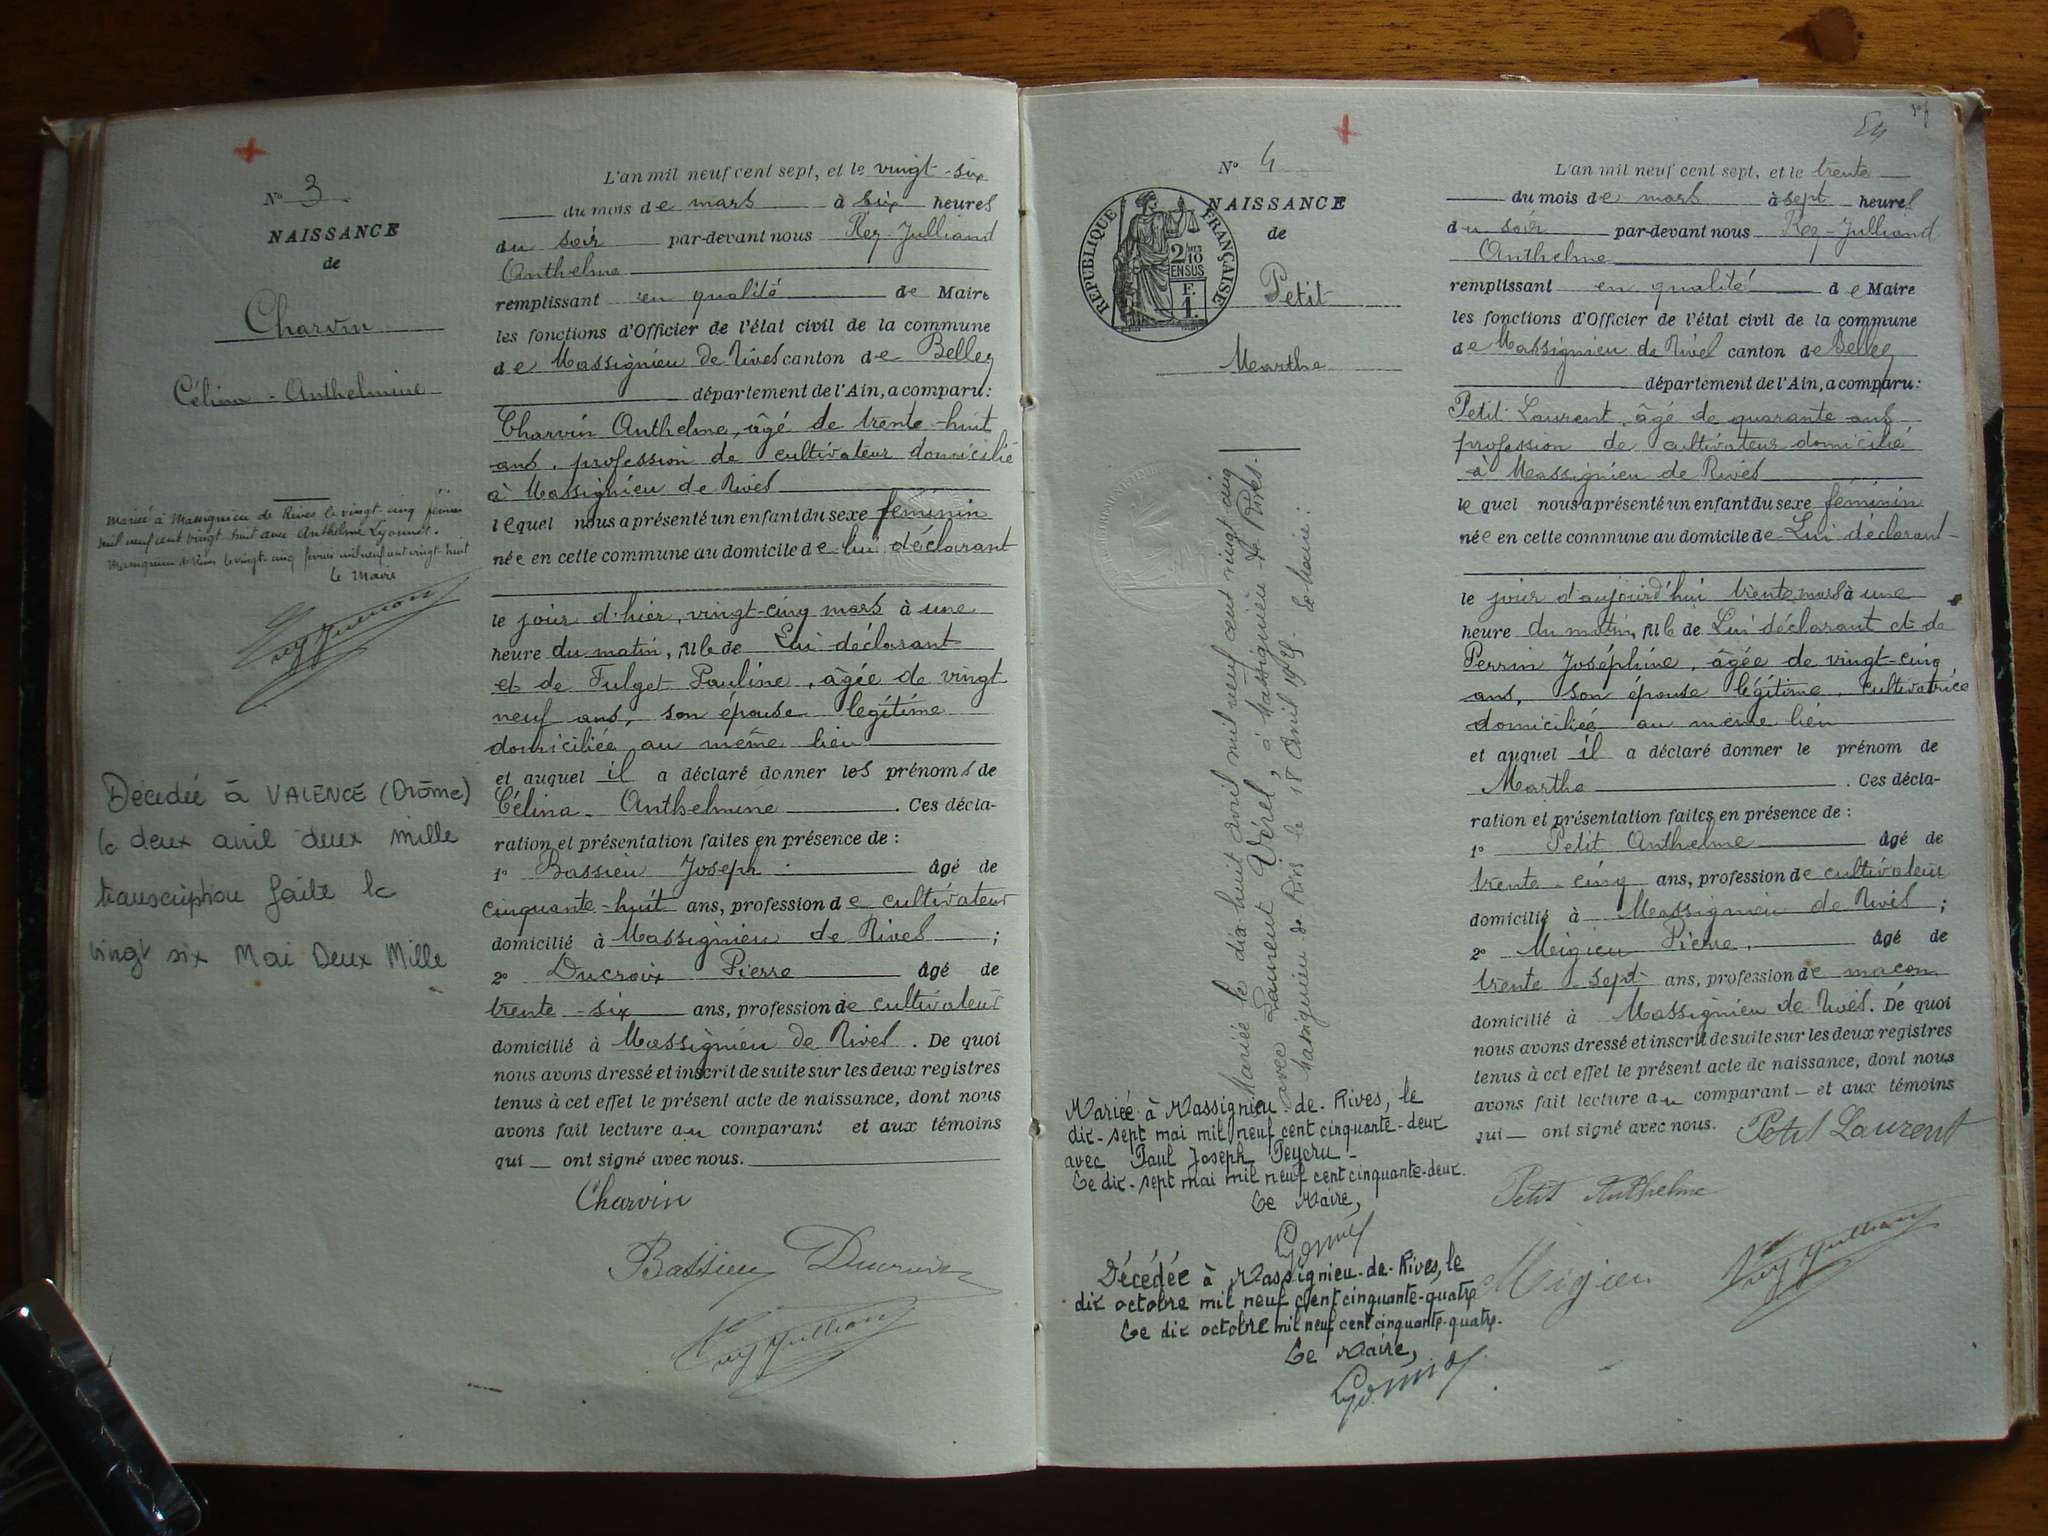 N° 3
NAISSANCE
de
Charvin
Célina - Anthelmine
Mariée à Massignieu de Rives le vingt-cinq février
mil neuf cent vingt huit avec Anthelme Lyonnet.
Massignieu de Rives le vingt-cinq février mil neuf cent vingt huit
Le Maire
Décédée à VALENCE (Drôme)
le deux avril deux mille
transcription faite le
vingt six Mai Deux Mille
L'an mil neuf cent sept, et le vingt-six
du mois de mars à six heures
du soir par-devant nous Rey-Julliand
Anthelme
remplissant en qualité de Maire
les fonctions d'Officier de l'état civil de la commune
de Massignieu de Rives canton de Belley
département de l'Ain, a comparu:
Charvin Anthelme, âgé de trente-huit
ans, profession de cultivateur domicilié
à Massignieu de Rives
lequel nous a présenté un enfant du sexe féminin
née en cette commune au domicile de lui déclarant
le jour d'hier, vingt-cinq mars à une
heure du matin, fille de Lui déclarant
et de Fulget Pauline, âgée de vingt
neuf ans, son épouse légitime
domiciliée au même lieu
et auquel il a déclaré donner les prénoms de
Célina - Anthelmine. Ces décla-
ration et présentation faites en présence de :
1° Bassieu Joseph âgé de
cinquante-huit ans, profession de cultivateur
domicilié à Massignieu de Rives ;
2° Ducroix Pierre âgé de
trente-six ans, profession de cultivateur
domicilié à Massignieu de Rives. De quoi
nous avons dressé et inscrit de suite sur les deux registres
tenus à cet effet le présent acte de naissance, dont nous
avons fait lecture au comparant et aux témoins
qui ont signé avec nous.
Charvin
Bassieu Ducroix
Rey Julliand
54
N° 4
NAISSANCE
de
RÉPUBLIQUE FRANÇAISE
2/10
EN SUS
F.
1.
Petit
Marthe
Mariée le dix huit avril mil neuf cent vingt cinq
avec Laurent Vérel, à Massignieu de Rives.
Massignieu de Rives le 18 Avril 1925. Le Maire :
Mariée à Massignieu-de-Rives, le
dix-sept mai mil neuf cent cinquante-deux
avec Paul Joseph Peycru -
Le dix-sept mai mil neuf cent cinquante-deux.
Le Maire,
Décédée à Massignieu-de-Rives, le
dix octobre mil neuf cent cinquante-quatre
Le dix octobre mil neuf cent cinquante-quatre.
Le Maire,
L'an mil neuf cent sept, et le trente
du mois de mars à sept heures
du soir par-devant nous Rey-Julliand
Anthelme
remplissant en qualité de Maire
les fonctions d'Officier de l'état civil de la commune
de Massignieu de Rives canton de Belley
département de l'Ain, a comparu:
Petit Laurent, âgé de quarante ans
profession de cultivateur domicilié
à Massignieu de Rives
lequel nous a présenté un enfant du sexe féminin
née en cette commune au domicile de Lui déclarant
le jour d'aujourd'hui trente mars à une
heure du matin, fille de Lui déclarant et de
Perrin Joséphine, âgée de vingt-cinq
ans, son épouse légitime, cultivatrice
domiciliée au même lieu
et auquel il a déclaré donner le prénom de
Marthe. Ces décla-
ration et présentation faites en présence de :
1° Petit Anthelme âgé de
trente-cinq ans, profession de cultivateur
domicilié à Massignieu de Rives ;
2° Meigieu Pierre, âgé de
trente-sept ans, profession de maçon
domicilié à Massignieu de Rives. De quoi
nous avons dressé et inscrit de suite sur les deux registres
tenus à cet effet le présent acte de naissance, dont nous
avons fait lecture au comparant et aux témoins
qui ont signé avec nous. Petit Laurent
Petit Anthelme
Meigieu Rey Julliand